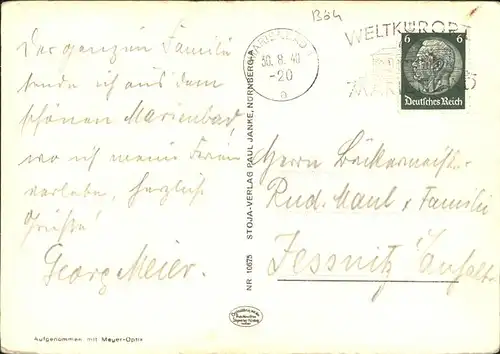 B64
Der ganzen Familie
sende ich aus dem
schönen Marienbad,
wo ich meine Ferien
verlebe, herzliche
Grüsse!
Georg Meier.
Aufgenommen mit Meyer-Optik
NR. 10625 STOJA-VERLAG PAUL JANKE, NÜRNBERG-A
MARIENBAD
30.8.40
-20
a
WELTKURORT
MARI
6 6
Deutsches Reich
Herrn Bäckermeister
Rud. Maul & Familie
Jessnitz Anhalt